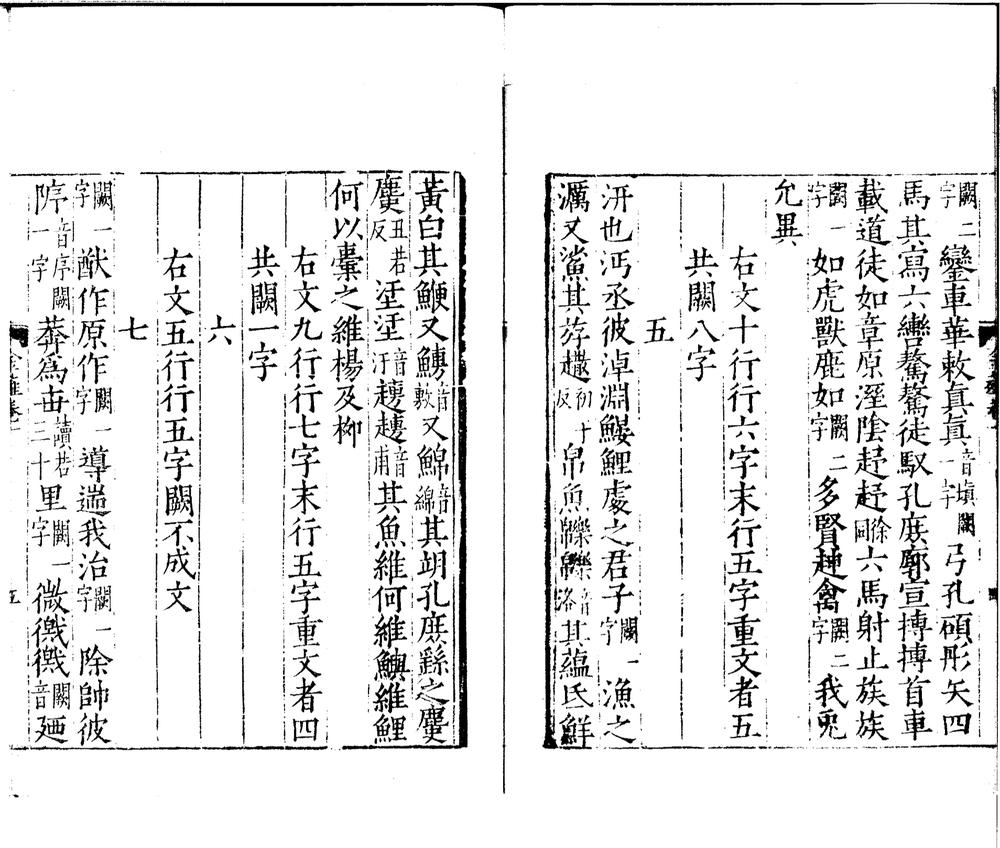 闕二字鑾車華敕真真音塡闕一字弓孔碩彤矢四
馬其寫六轡驁驁徒馭孔庶廓宣搏搏首車
載道徒如章原溼陰趍趍徐同六馬射止族族
闕一字如虎獸鹿如闕二字多賢禽闕二字我兎
允異
右文十行行六字末行五字重文者五
共闕八字
五
汧也沔丞彼淖淵鰋鯉處之君子闕一字漁之
濿又鯊其斿初十反帛魚皪皪音洛其蘊氐鮮
黃白其鯾又鱄音又鯞音綿其胡孔庶之
丑若反汗音甫其魚維何維鱮維鯉
何以橐之維楊及柳
右文九行行七字末行五字重文者四
共闕一字
六
右文五行行五字闕不成文
七
闕一字猷作原作闕一字導遄我治闕一字除帥彼
阾音序闕一字莽爲丗讀若三十里闕一字微徶徶音闕廼
金薤卷一
五